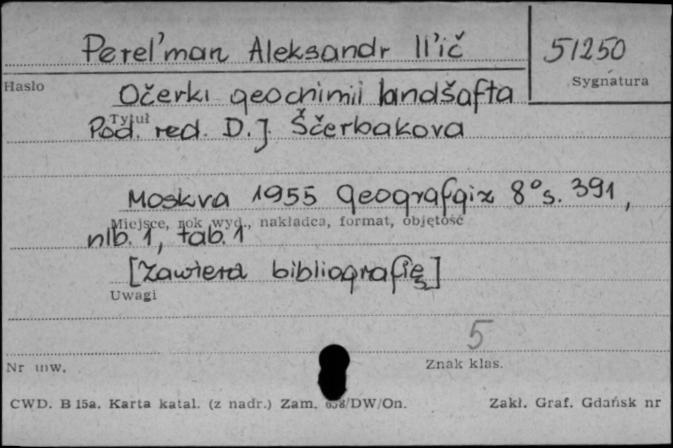 Perel'man Aleksandr Il'ič
51250
Hasło
Sygnatura
Očerki geochimii landšafta
Tytuł
Pod. red. D. J. Ščerbakova
Moskva 1955 Geografgiz 8° s. 391,
Miejsce, rok wyd., nakładca, format, objętość
nlb. 1, tab. 1
[Zawiera bibliografię]
Uwagi
5
Nr inw.
Znak klas.
CWD. B 15a. Karta katal. (z nadr.) Zam. 638/DW/On.
Zakł. Graf. Gdańsk nr